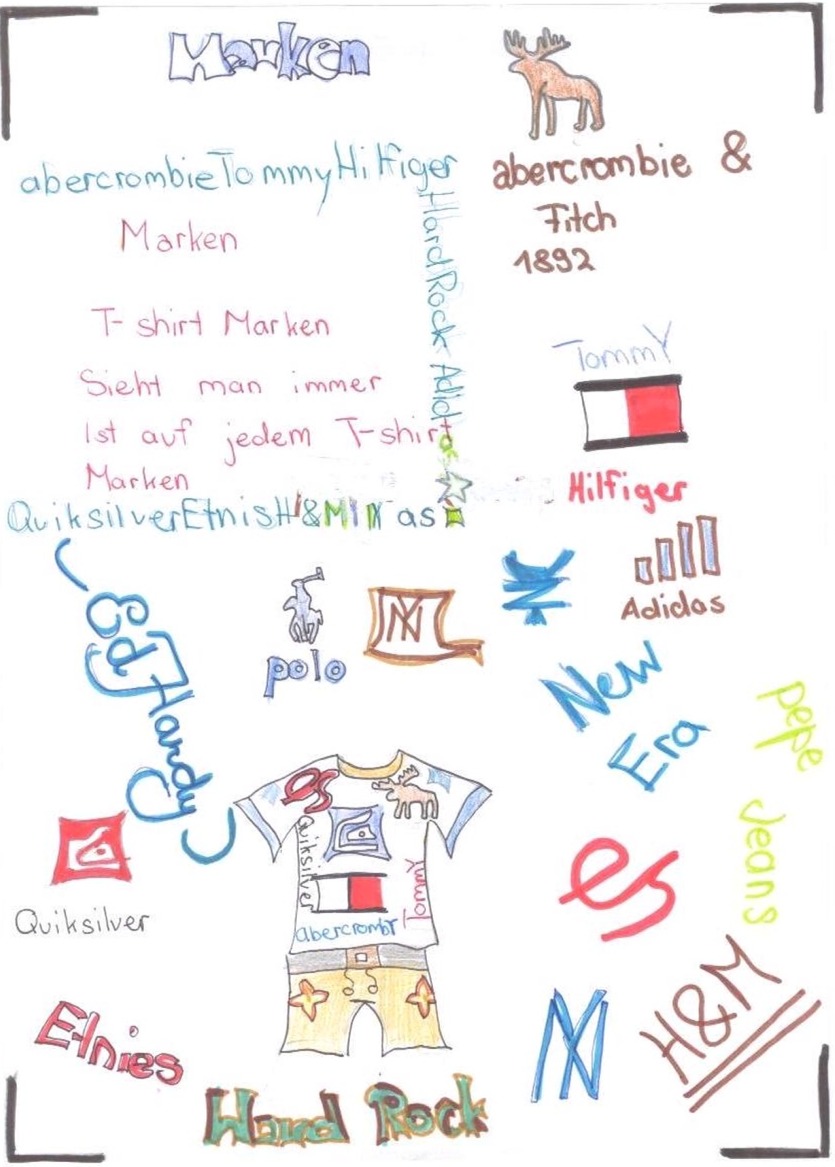 Marken
abercrombieTommyHilfiger
HardRock Adidas
Marken
T-shirt Marken
Sieht man immer
Ist auf jedem T-shirt
Marken
QuiksilverEtnisH&M
abercrombie &
Fitch
1892
TommY
Hilfiger
Adidas
polo
NY
Ed Hardy
New
Era
pepe
Jeans
es
Quiksilver
TommY
abercrombY
es
Quiksilver
Etnies
NY
H&M
Hard Rock